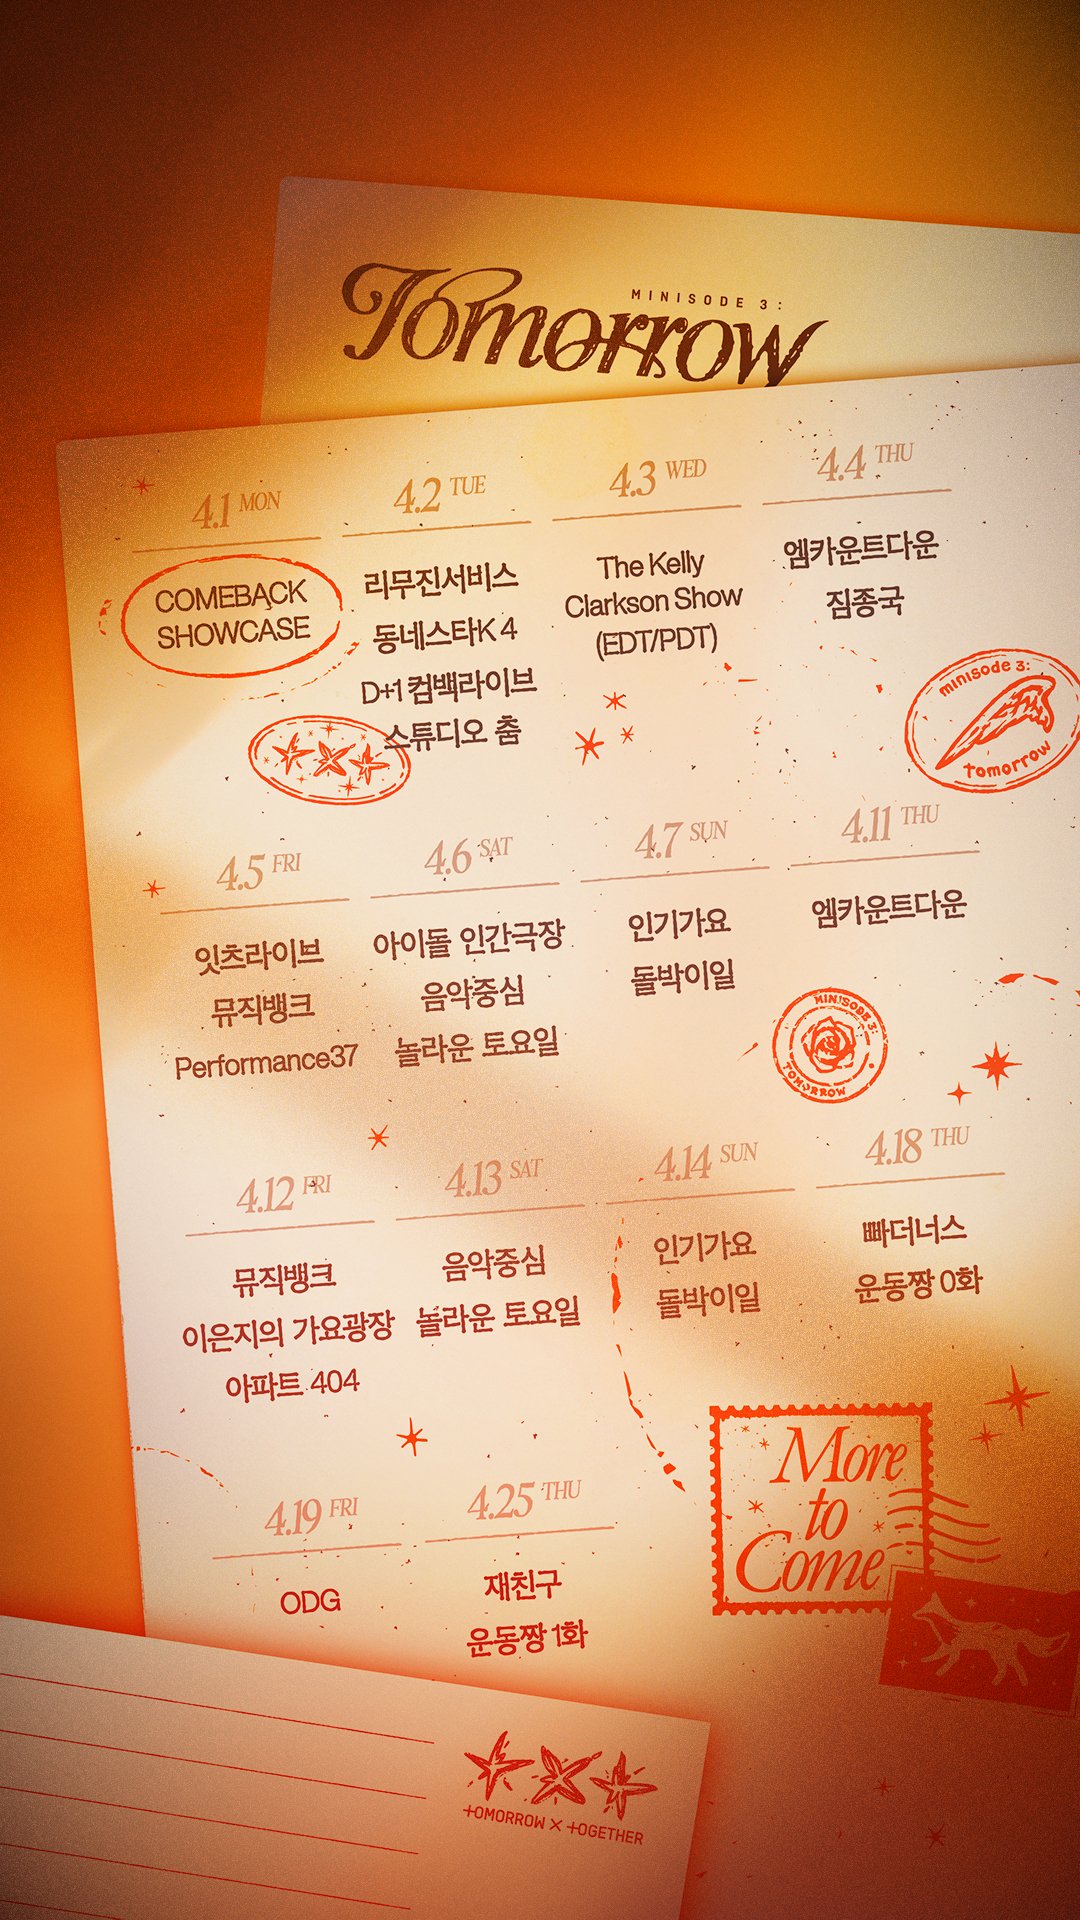 MINISODE 3:
Tomorrow
4.1 MON
COMEBACK
SHOWCASE
4.2 TUE
리무진서비스
동네스타K 4
D+1 컴백라이브
스튜디오 춤
4.3 WED
The Kelly
Clarkson Show
(EDT/PDT)
4.4 THU
엠카운트다운
짐종국
minisode 3:
tomorrow
4.5 FRI
잇츠라이브
뮤직뱅크
Performance37
4.6 SAT
아이돌 인간극장
음악중심
놀라운 토요일
4.7 SUN
인기가요
돌박이일
4.11 THU
엠카운트다운
MINISODE 3:
TOMORROW
4.12 FRI
뮤직뱅크
이은지의 가요광장
아파트 404
4.13 SAT
음악중심
놀라운 토요일
4.14 SUN
인기가요
돌박이일
4.18 THU
빠더너스
운동짱 0화
4.19 FRI
ODG
4.25 THU
재친구
운동짱 1화
More
to
Come
TOMORROW X TOGETHER